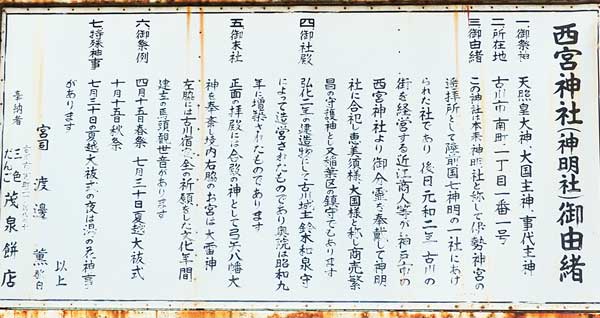 西宮神社(神明社)御由緒
一 御祭神 天照皇大神・大国主神・事代主神
二 所在地 古川市南町一丁目一番一号
三 御由緒 この神社は本来神明社と称して伊勢神宮の
遥拝所として陸前国七神明の一社にあげ
られた社であり 後日元和二年 古川の
街を経営する近江商人等が神戸市の
西宮神社より御分霊を奉戴して神明
社に合祀し恵美須様、大国様と称し商売繁
昌の守護神とし又稲葉区の鎮守でもあります
四 御社殿 弘化二年の建造物にして古川城主鈴木和泉守
によって造営されたものであり奥院は昭和九
年に増築されたものであります
五 御末社 正面の拝殿には合殿の神として弓矢八幡大
神を奉斎し境内右脇のお宮は大雷神
左脇には古川宿安全の祈願をした文化年間
建立の馬頭観世音があります
六 御祭例 四月十五日春祭 七月三十日夏越大祓式
十月十五日秋祭
七 特殊神事 七月三十日の夏越大祓式の夜は 神事
があります
以上
宮司 渡邊 薫
奉納者
三色
だんご
茂泉餅店